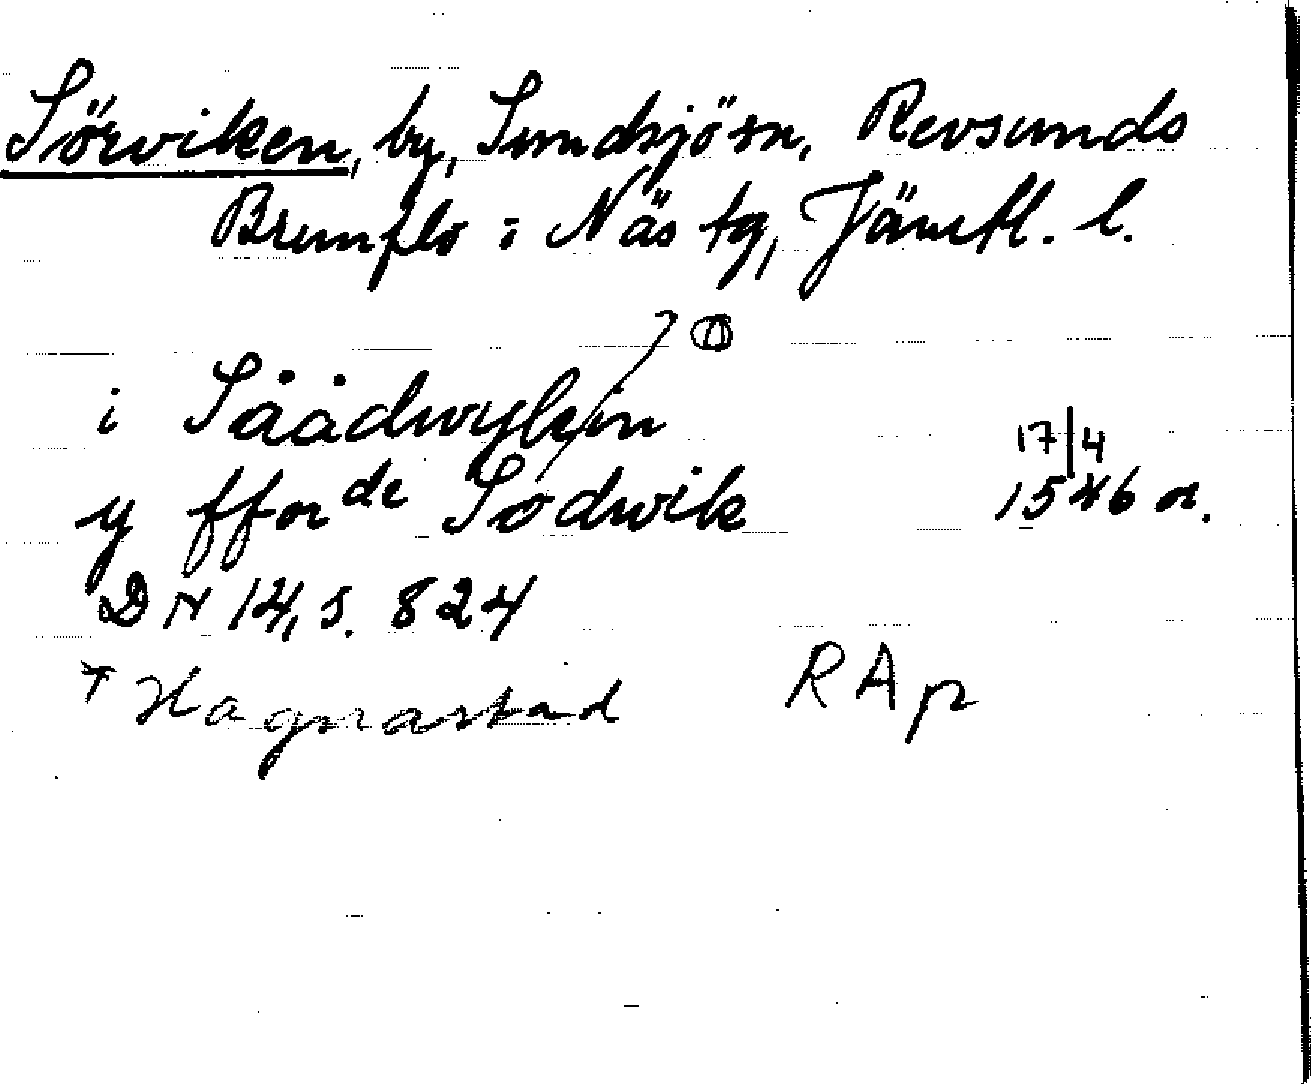 Sörviken, by, Sundsjö sn, Revsunds
Brunflo i Näs tg, Jämtl. l.
i Såådwykin
y fforde Sodwik
17/4 1546 or.
DN 14, s. 824
* Hagnastad
RAp